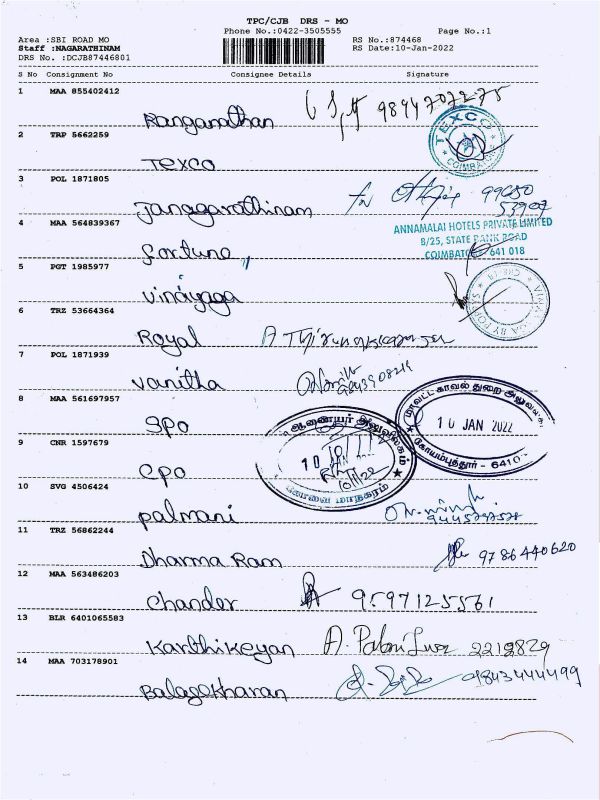 TPC/CJB DRS - MO
Phone No.:0422-3505555 Page No.:1
Area :SBI ROAD MO RS No.:874468
Staff :NAGARATHINAM RS Date:10-Jan-2022
DRS No. :DCJB87446801
S No Consignment No Consignee Details Signature
1 MAA 855402412
Ranganathan
2 TRP 5662259
TEXCO
COIMBATORE
Texco
3 POL 1871805
Janagarathinam for 99650
53907
4 MAA 564839367
ANNAMALAI HOTELS PRIVATE LIMITED
8/25, STATE BANK ROAD
COIMBATORE 641 018
fortune
5 PGT 1985977
Vinayaga
6 TRZ 53664364
Royal
7 POL 1871939
Vanitha 9843908219
8 MAA 561697957
மாவட்ட காவல் துறை அலுவலகம்
10 JAN 2022
கோயம்புத்தூர் - 6410
SPO
ஆணையர் அலுவலகம்
9 CNR 1597679
10
கோவை மாநகரம்
CPO
10 SVG 4506424
Palmani
11 TRZ 56862244
Dharma Ram 9786440620
12 MAA 563486203
Chander 9597125561
13 BLR 6401065583
Karthikeyan 2212829
14 MAA 703178901
Balagekharan 9843444499